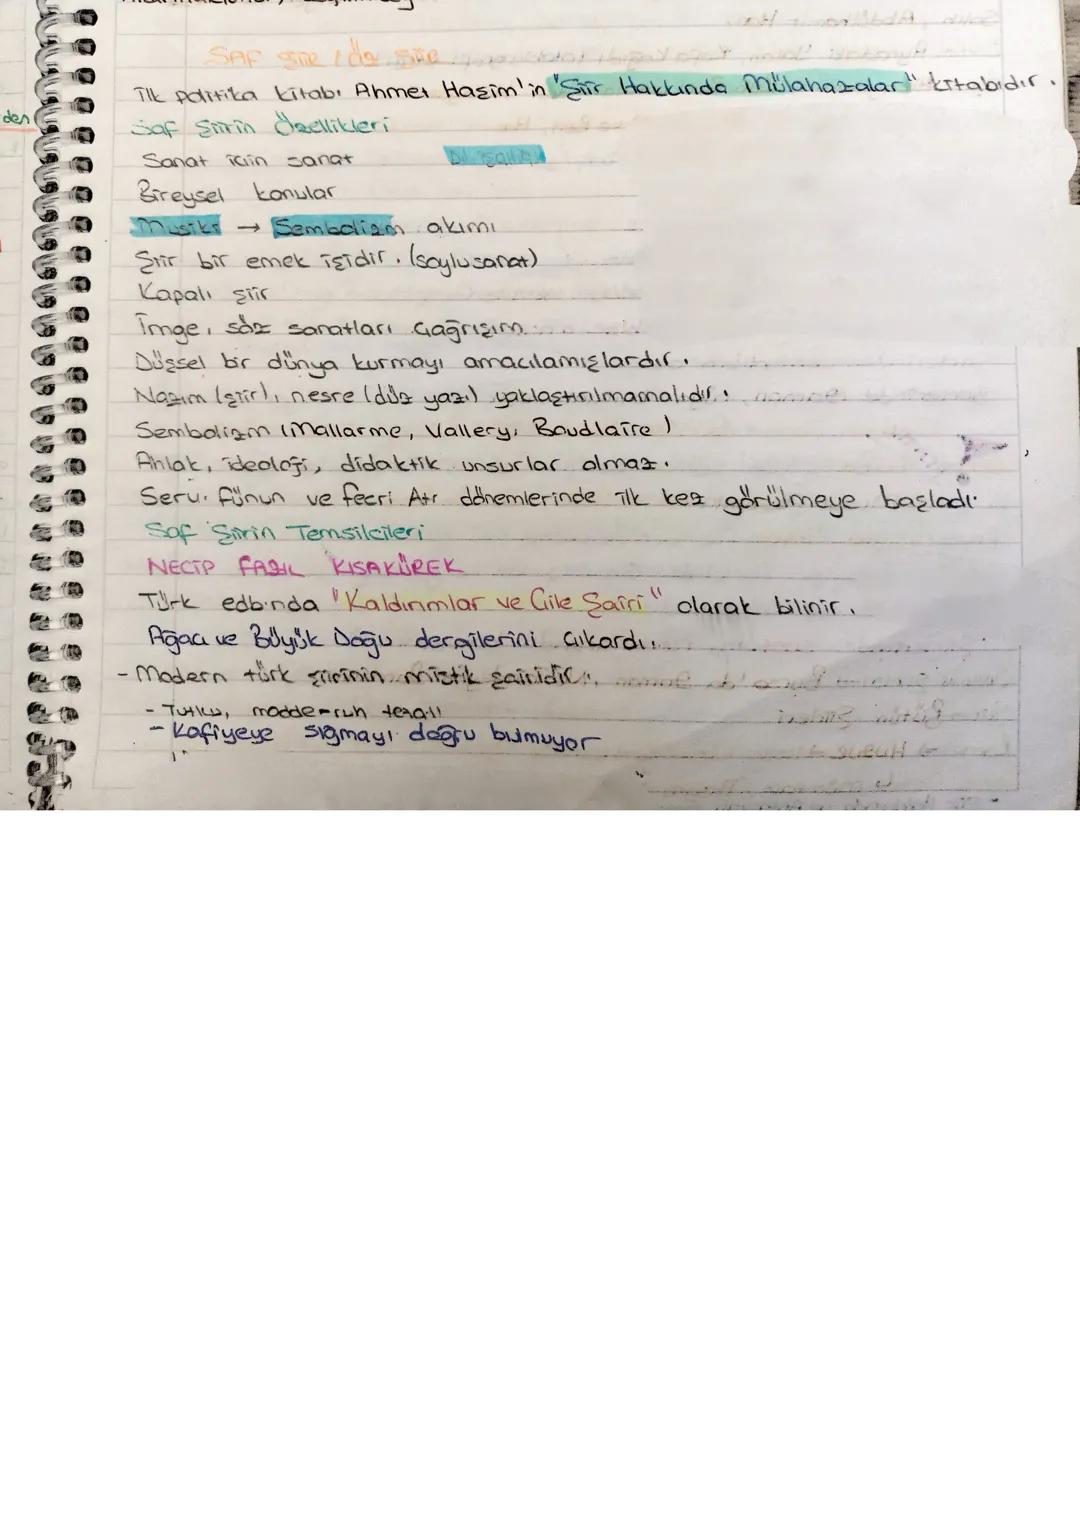 SAF ŞİİR / öz ŞİİR
İlk politika kitabı Ahmet Haşim'in "Şiir Hakkında Mülahazalar" kitabıdır.
den
Saf Şiirin Özellikleri
Sanat için sanat
Bireysel konular
Musiki → Sembolizm akımı
Şiir bir emek işidir. (soylu sanat)
Kapalı şiir
İmge, söz sanatları çağrışım
Düşsel bir dünya kurmayı amaçlamışlardır.
Nazım (şiir), nesre (düz yazı) yaklaştırılmamalıdır.
Sembolizm (Mallarme, Vallery, Boudlaire)
Ahlak, ideoloji, didaktik unsurlar olmaz.
Serv. Fünun ve fecri Ati dönemlerinde ilk kez görülmeye başladı.
Saf Şiirin Temsilcileri
NECİP FAZIL KISAKÜREK
Türk edb.nda "Kaldırımlar ve Çile Şairi" olarak bilinir.
Ağaç ve Büyük Doğu dergilerini çıkardı.
- Modern türk şiirinin mistik şairidir.
- Tutku, madde-ruh
- Kafiyeye sığmayı doğru bulmuyor